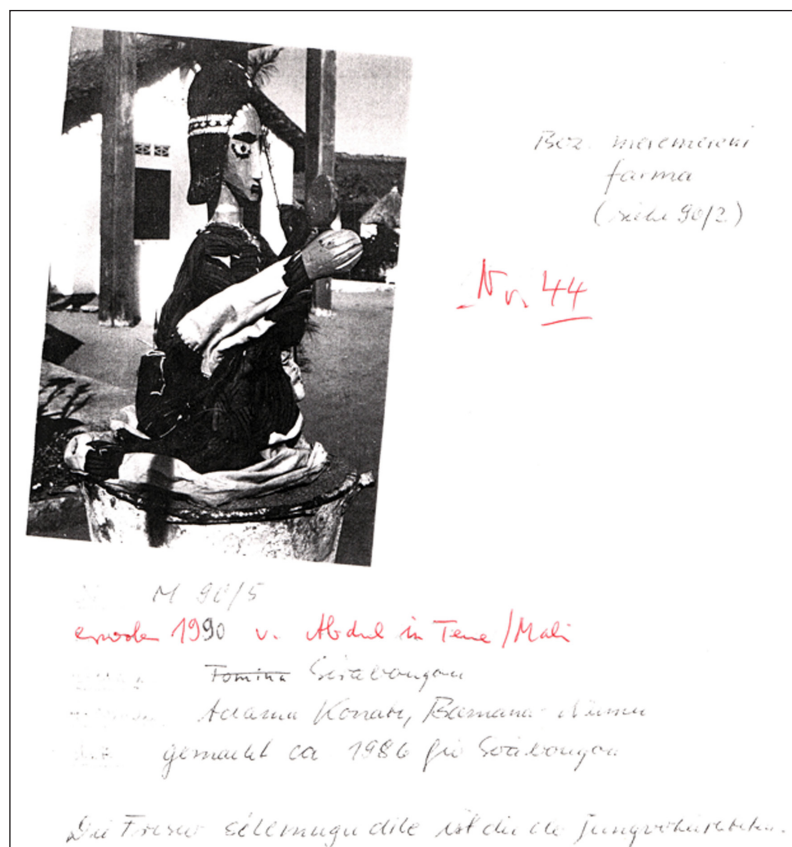 Bez. meremereni
farma
(siehe 90/2)
Nr. 44
M 90/5
erworben 1990 v. Abdul in Tene/Mali
Fomina Sirabougou
Adama Konare, Bamana-Numu
gemacht ca 1986 für Sirabougou
Die Frisur ist die der